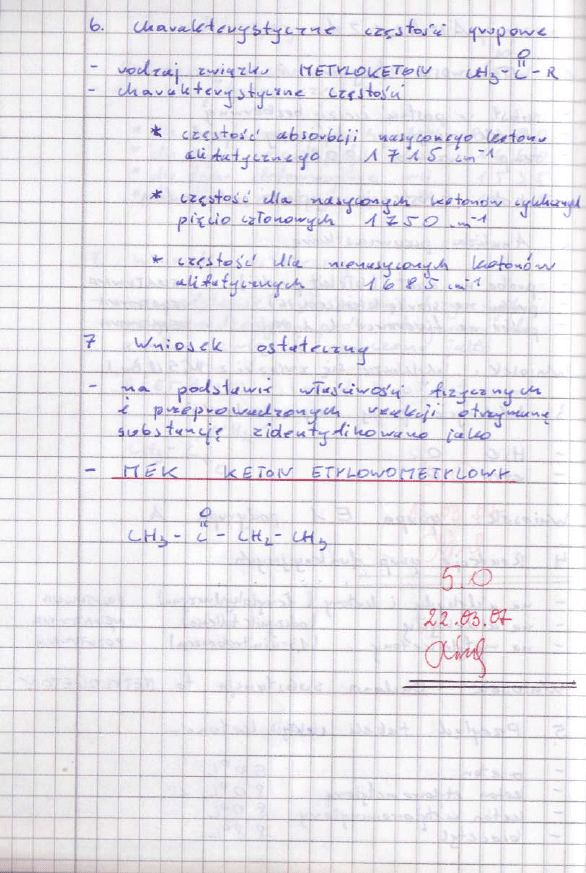 6. Charakterystyczne częstości grupowe
O
- rodzaj związku METYLOKETON CH3-C-R
- charakterystyczne częstości
* częstość absorbcji nasyconego ketonu
alifatycznego 1715 cm-1
* częstość dla nasyconych ketonów cyklicznych
pięcio członowych 1750 cm-1
* częstość dla nienasyconych ketonów
alifatycznych 1685 cm-1
7 Wniosek ostateczny
- na podstawie właściwości fizycznych
i przeprowadzonych reakcji otrzymaną
substancję zidentyfikowano jako
- MEK KETON ETYLOWOMETYLOWY
O
CH3-C-CH2-CH3
5.0
22.03.07